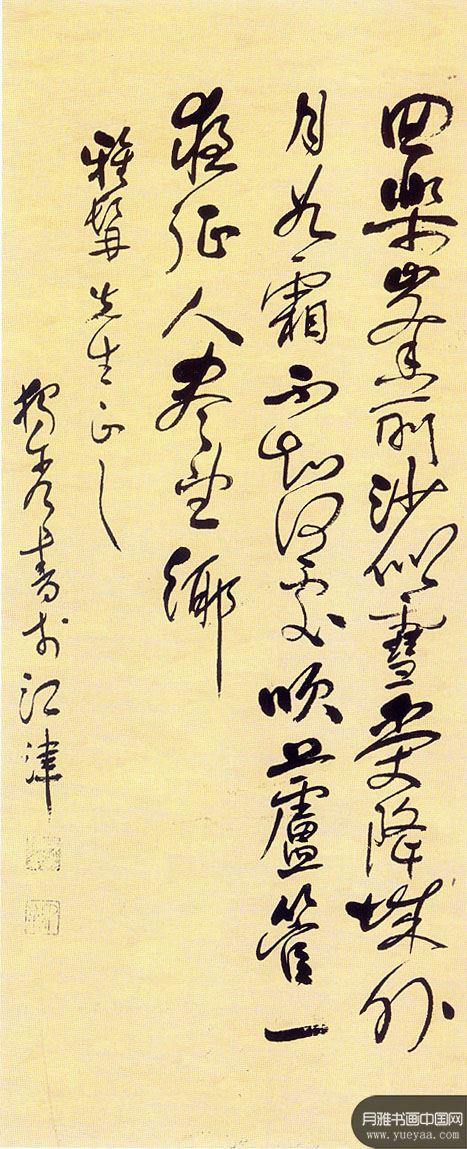 回樂峯前沙似雪受降城外
月如霜不知何處吹蘆管一
夜征人盡望鄉
雅髯先生正之
獨秀書於江津
月雅书画中国网
www.yueyaa.com